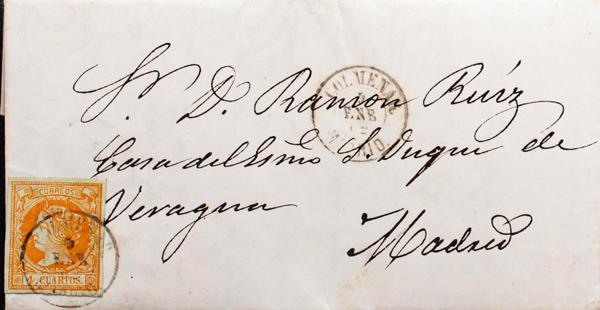 COLMENAR
ENE
MADRID
Sr. D. Ramon Ruíz
Casa del Esmo S. Duque de
Veragua
Madrid
CORREOS
4 CUARTOS.
ENE